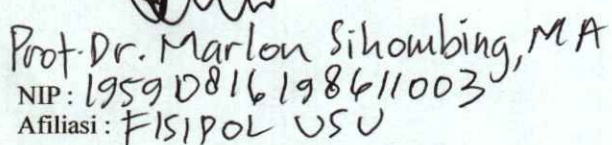 Prof. Dr. Marlon Sihombing, MA
NIP : 19590816198611003
Afiliasi : FISIPOL USU